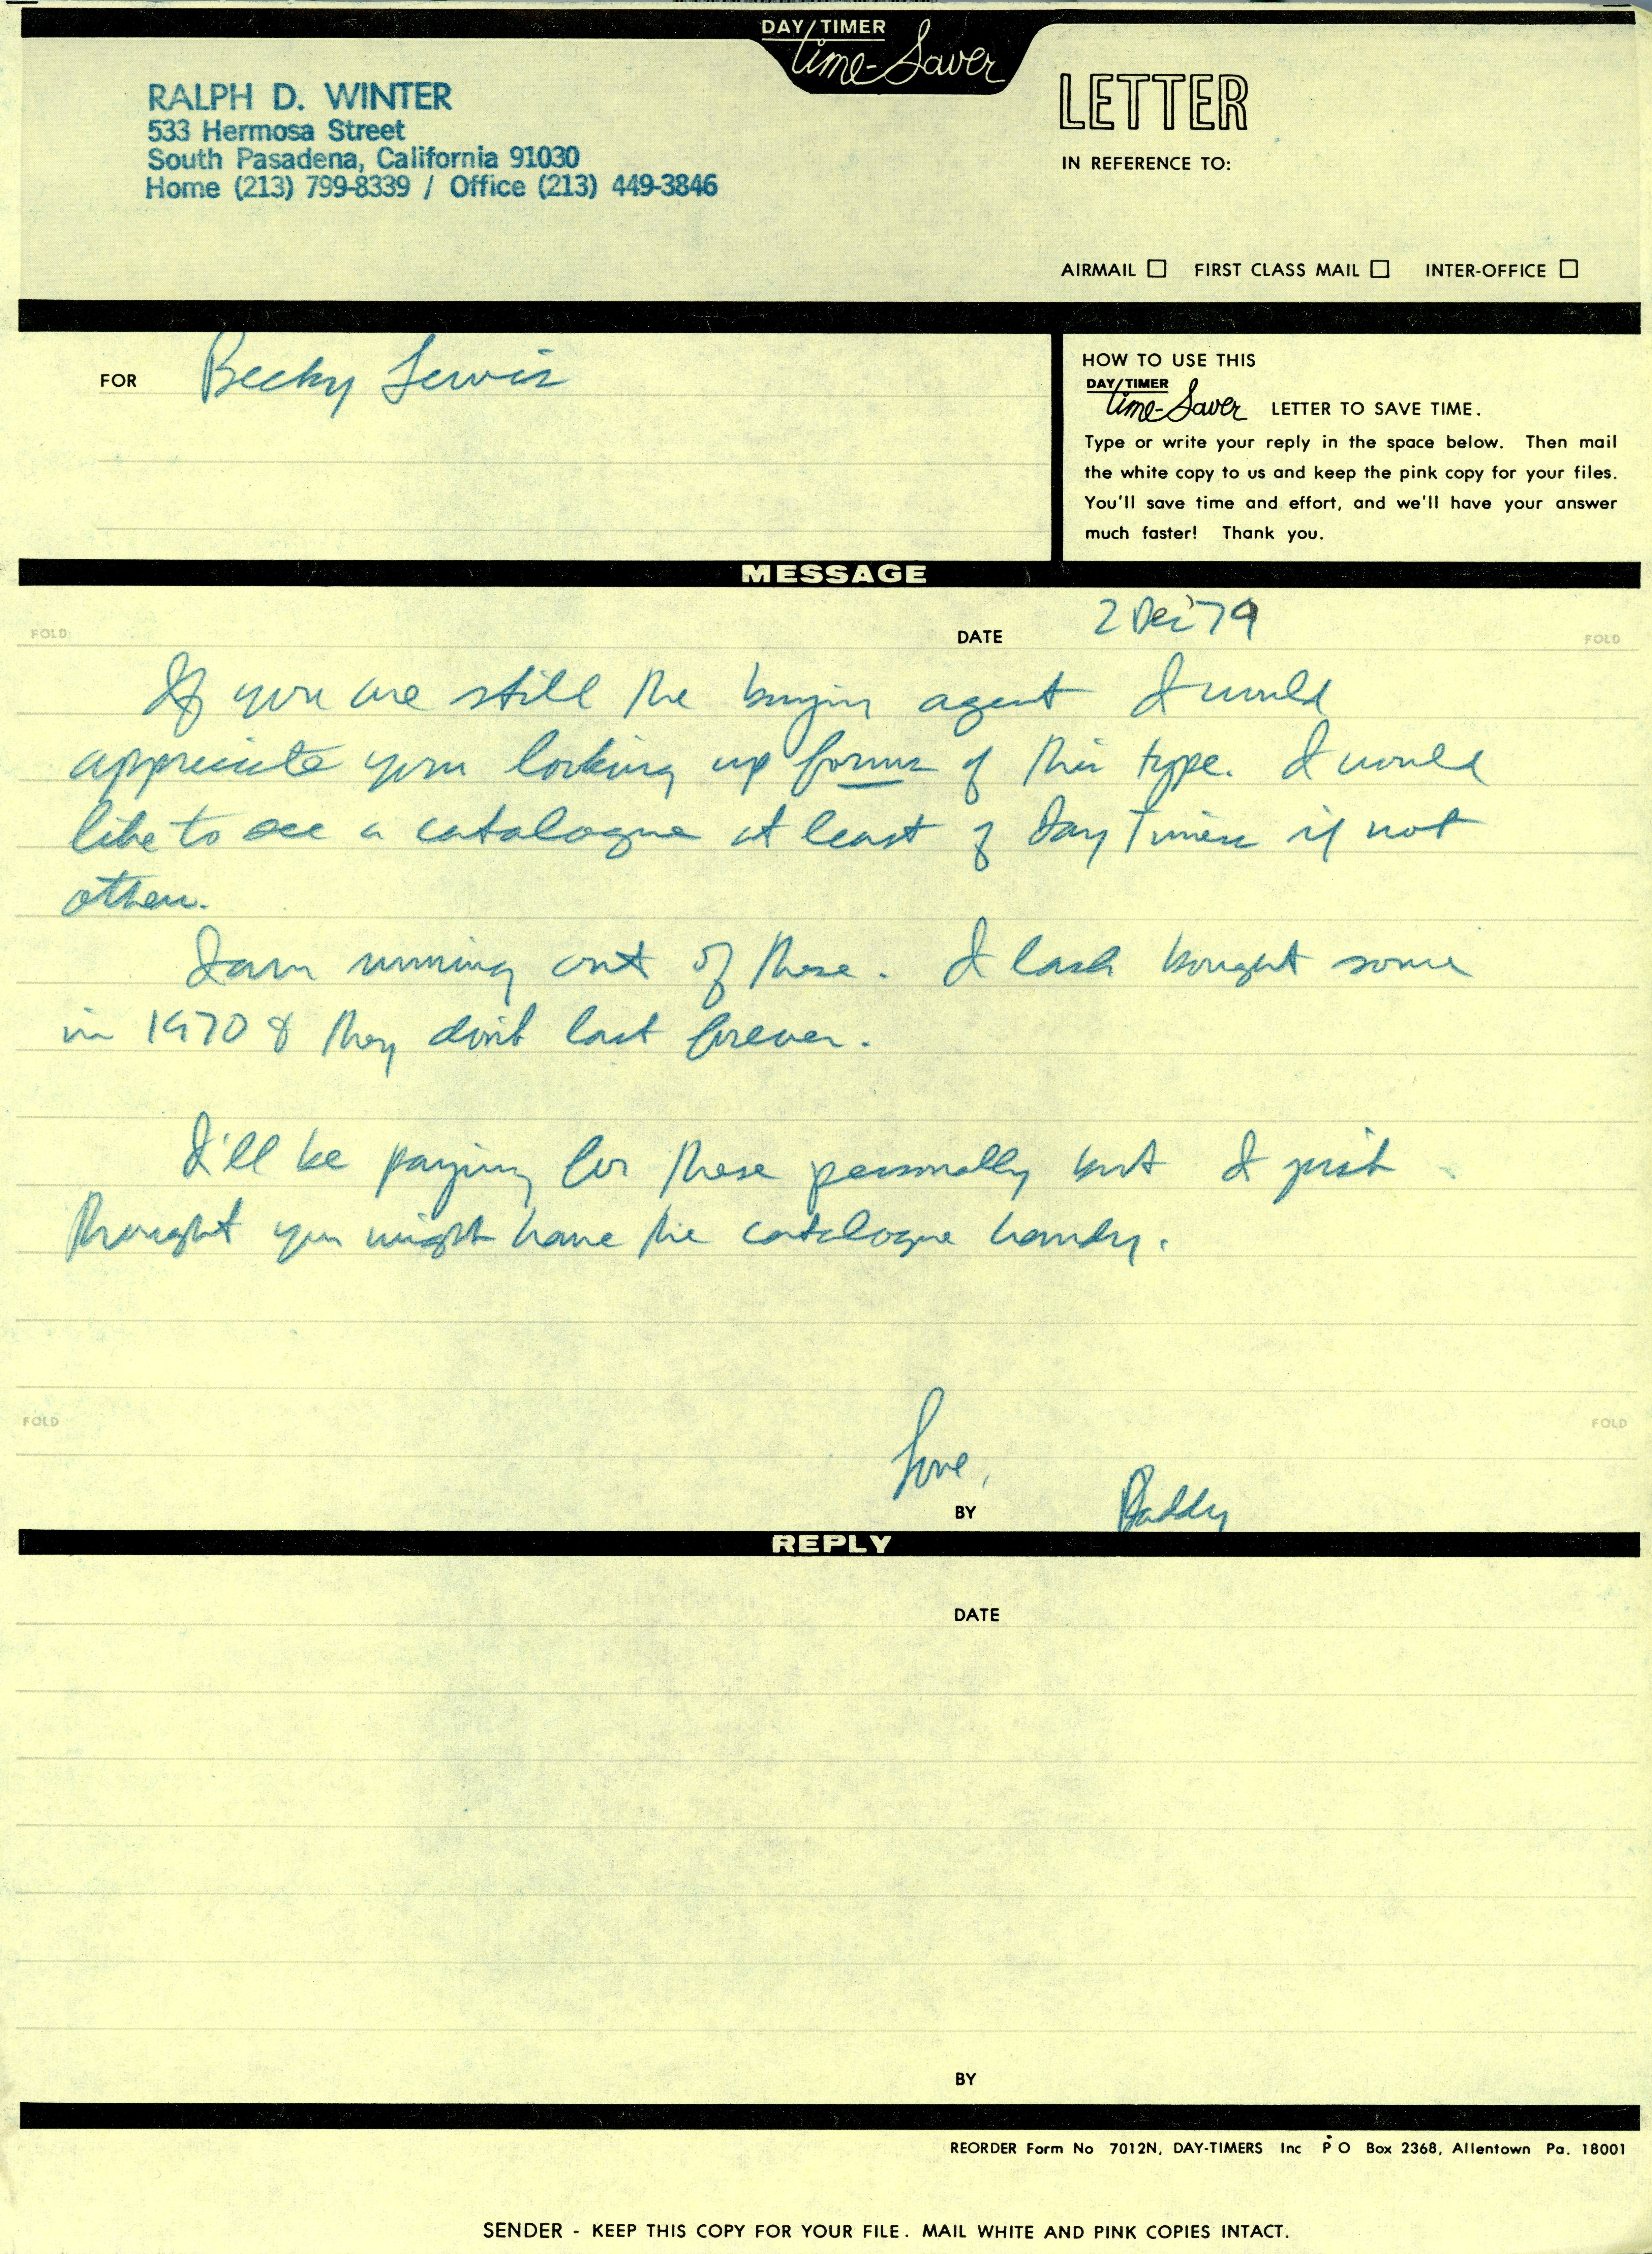 DAY/TIMER
Time-Saver
RALPH D. WINTER
533 Hermosa Street
South Pasadena, California 91030
Home (213) 799-8339 / Office (213) 449-3846
LETTER
IN REFERENCE TO:
AIRMAIL FIRST CLASS MAIL INTER-OFFICE
FOR Becky Lewis
HOW TO USE THIS
DAY/TIMER
Time-Saver LETTER TO SAVE TIME.
Type or write your reply in the space below. Then mail
the white copy to us and keep the pink copy for your files.
You'll save time and effort, and we'll have your answer
much faster! Thank you.
MESSAGE
FOLD DATE 2 Dec '79 FOLD
If you are still the buying agent I would
appreciate your looking up forms of this type. I would
like to see a catalogue at least of Day Timers if not
others.
I am running out of these. I last bought some
in 1970 & they don't last forever.
I'll be paying for these personally but I just
thought you might have the catalogue handy.
FOLD FOLD
Love,
BY Daddy
REPLY
DATE
BY
REORDER Form No 7012N, DAY-TIMERS Inc P O Box 2368, Allentown Pa. 18001
SENDER - KEEP THIS COPY FOR YOUR FILE. MAIL WHITE AND PINK COPIES INTACT.